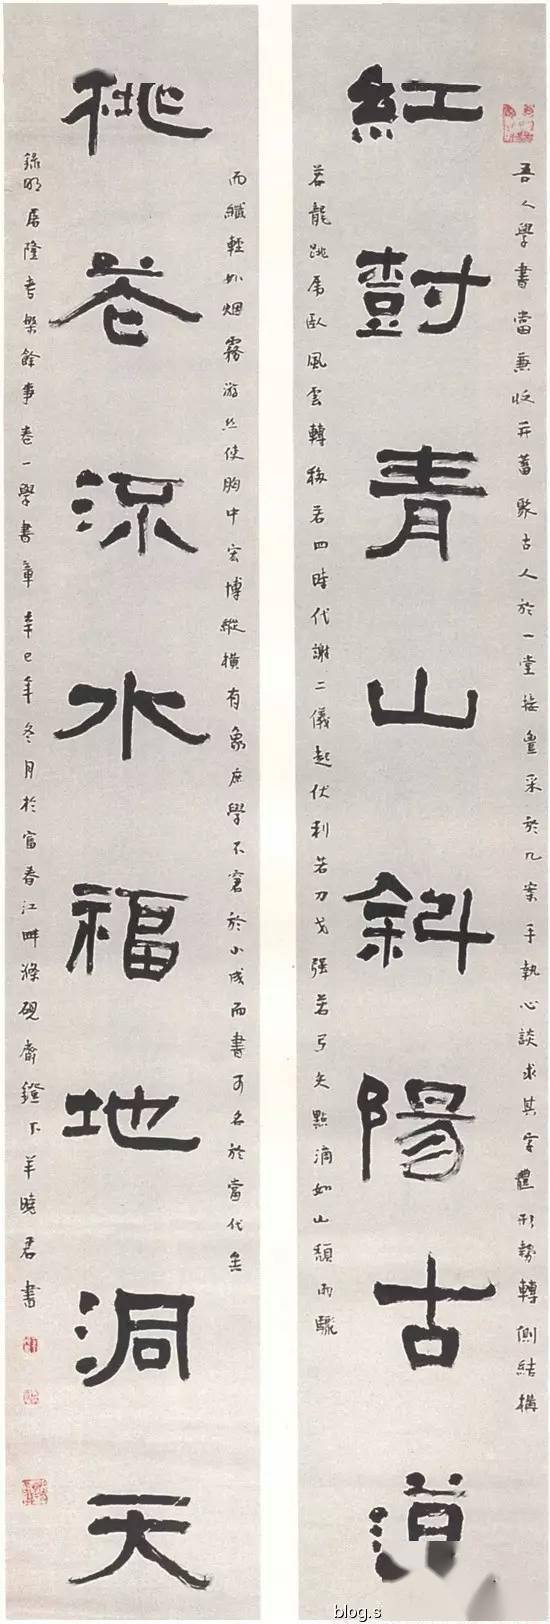 紅樹青山斜陽古道
吾人學書當兼收并蓄聚古人於一堂接豐采於几案手執心談求其字體形勢轉側結構
若龍跳虎臥風雲轉移若四時代謝二儀起伏利若刀戈强若弓矢點滴如山頹雨驟
桃花流水福地洞天
而纖輕如烟霧游絲使胸中宏博縱橫有象庶學不窘於小成而書可名於當代矣
錄明屠隆考槃餘事卷一學書章辛巳年冬月於富春江畔滌硯齋鐙下羊曉君書
blog.s